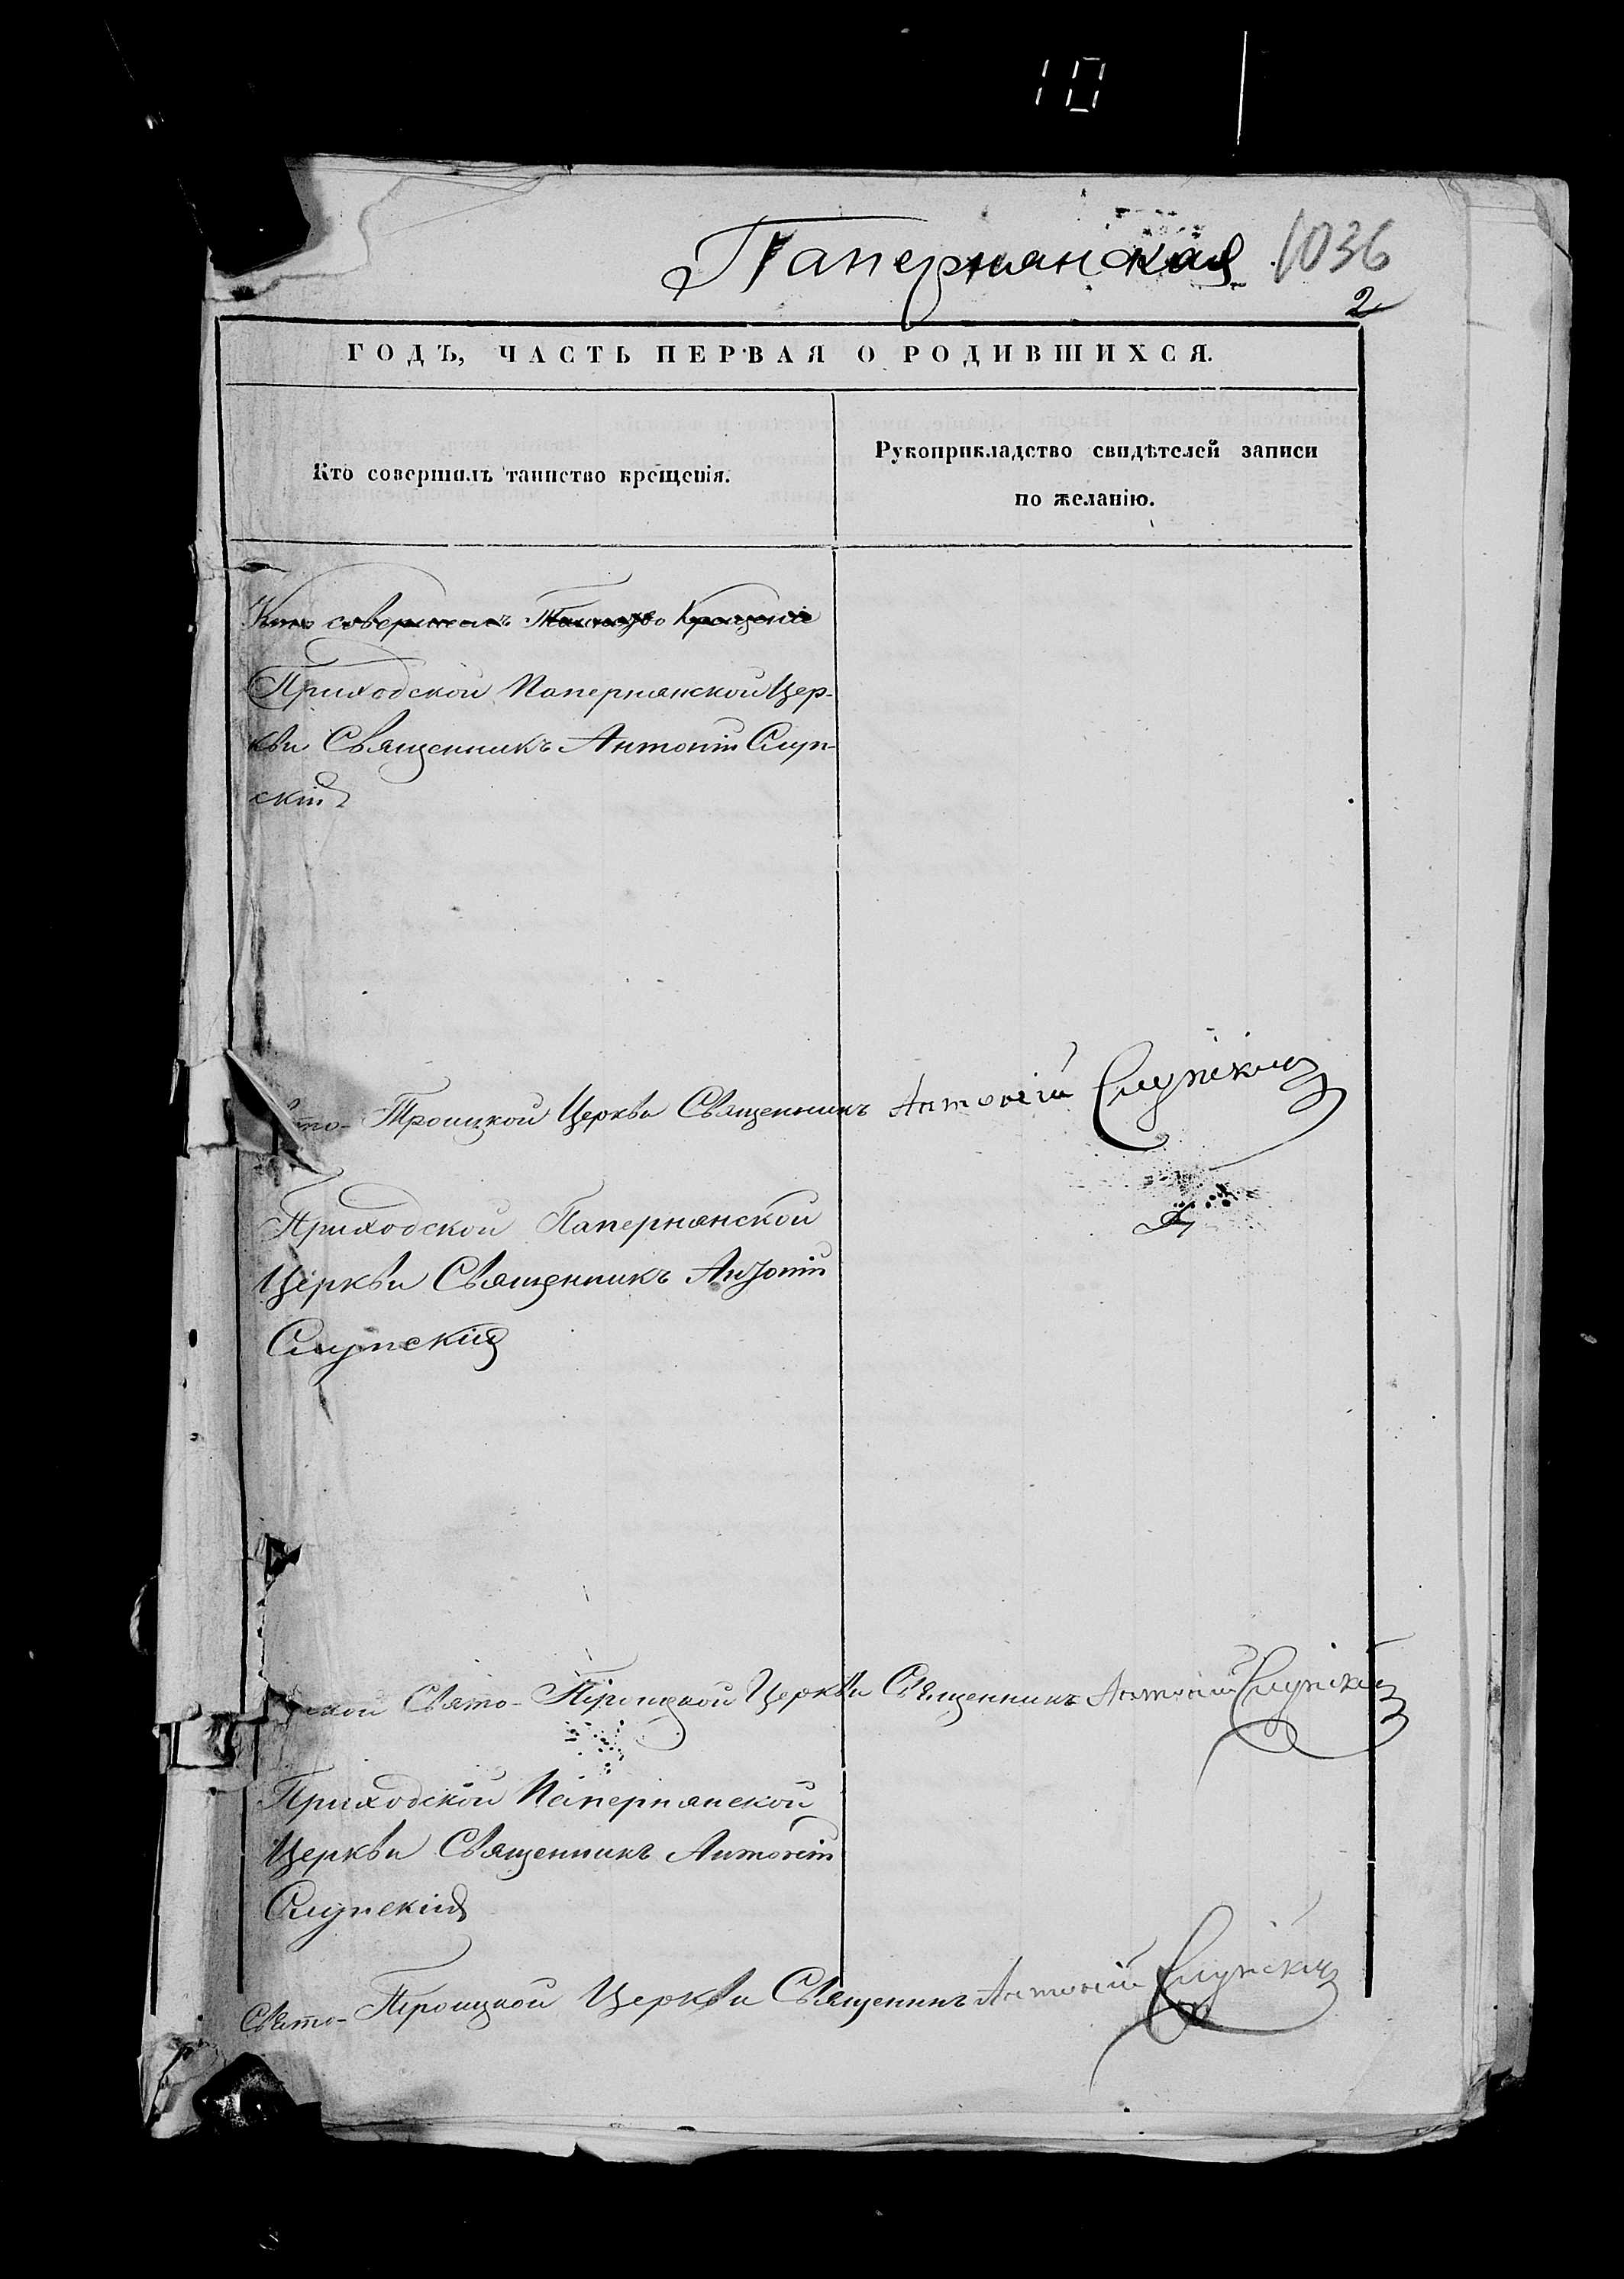 10
Папернянская 1036
2
ГОДЪ, ЧАСТЬ ПЕРВАЯ О РОДИВШИХСЯ.
Кто совершилъ таинство крещенія.
Рукоприкладство свидѣтелей записи
по желанію.
Кто совершилъ Таинство Крещеніе
Приходской Папернянской Цер-
кви Священникъ Антоній Слуп-
скій
то- Троицкой Церкви Священникъ Антоній Слупскій
Приходской Папернянской
Церкви Священникъ Антоній
Слупскій
ской Свято- Троицкой Церкви Священникъ Антоній Слупскій
Приходской Папернянской
Церкви Священникъ Антоній
Слупскій
Свято- Троицкой Церкви Священникъ Антоній Слупскій